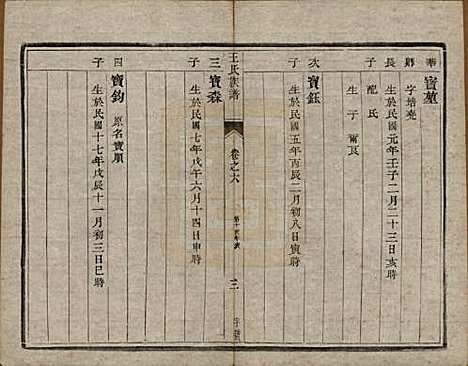 寶堃
字培堯
長 生於民國元年壬子二月二十三日亥時
子 配氏
生子 爾良
次 寶鈺
子 生於民國五年丙辰二月初八日寅時
王氏族譜
卷之六
三
三 寶森
子 生於民國七年戊午六月十四日申時
四 寶鈞 原名寶順
子 生於民國十七年戊辰十一月初三日巳時